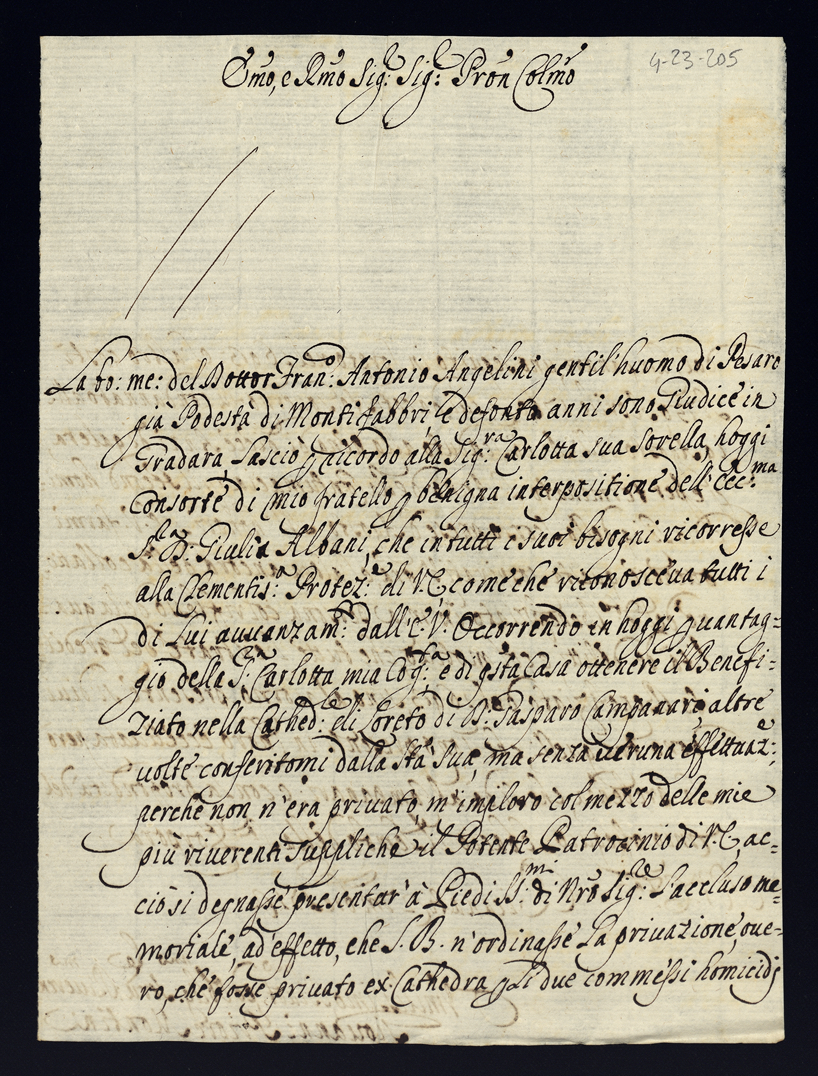 Emo, e Rmo Sig.r Sig.r Pron Colmo
4-23-205
La bo: me: del Dottor Fran.o Antonio Angelini gentil'huomo di Pesaro
già Podestà di Monti fabbri, e defonto anni sono Giudice in
Gradara lasciò p ricordo alla Sig.ra Carlotta sua sorella, hoggi
Consorte di mio fratello p benigna interpositione dell'Ecc.ma
S.ra D: Giulia Albani, che in tutti i suoi bisogni ricorresse
alla Clementis.a Protez.e di V.E. come che riconosceva tutti i
di Lui avvanzam.ti dall'E.V. Occorrendo in hoggi p vantag=
gio della S.ra Carlotta mia Cog.ta e di q̃sta Casa ottenere il Benefi=
ziato nella Cathed.le di Loreto di D. Gasparo Campanari altre
volte conferitomi dalla Stà Sua, ma senza veruna effettuaz.e;
perche non n'era privato, m'imploro col mezzo delle mie
più riverenti suppliche il Potente Patrocinio di V.E., ac=
ciò si degnasse presentar' à Piedi SS.mi di Nrõ Sig.re l'accluso me=
moriale, ad effetto, che S. B. n'ordinasse la privazione, ove=
ro, che fosse privato ex Cathedra p li due commessi homicidj